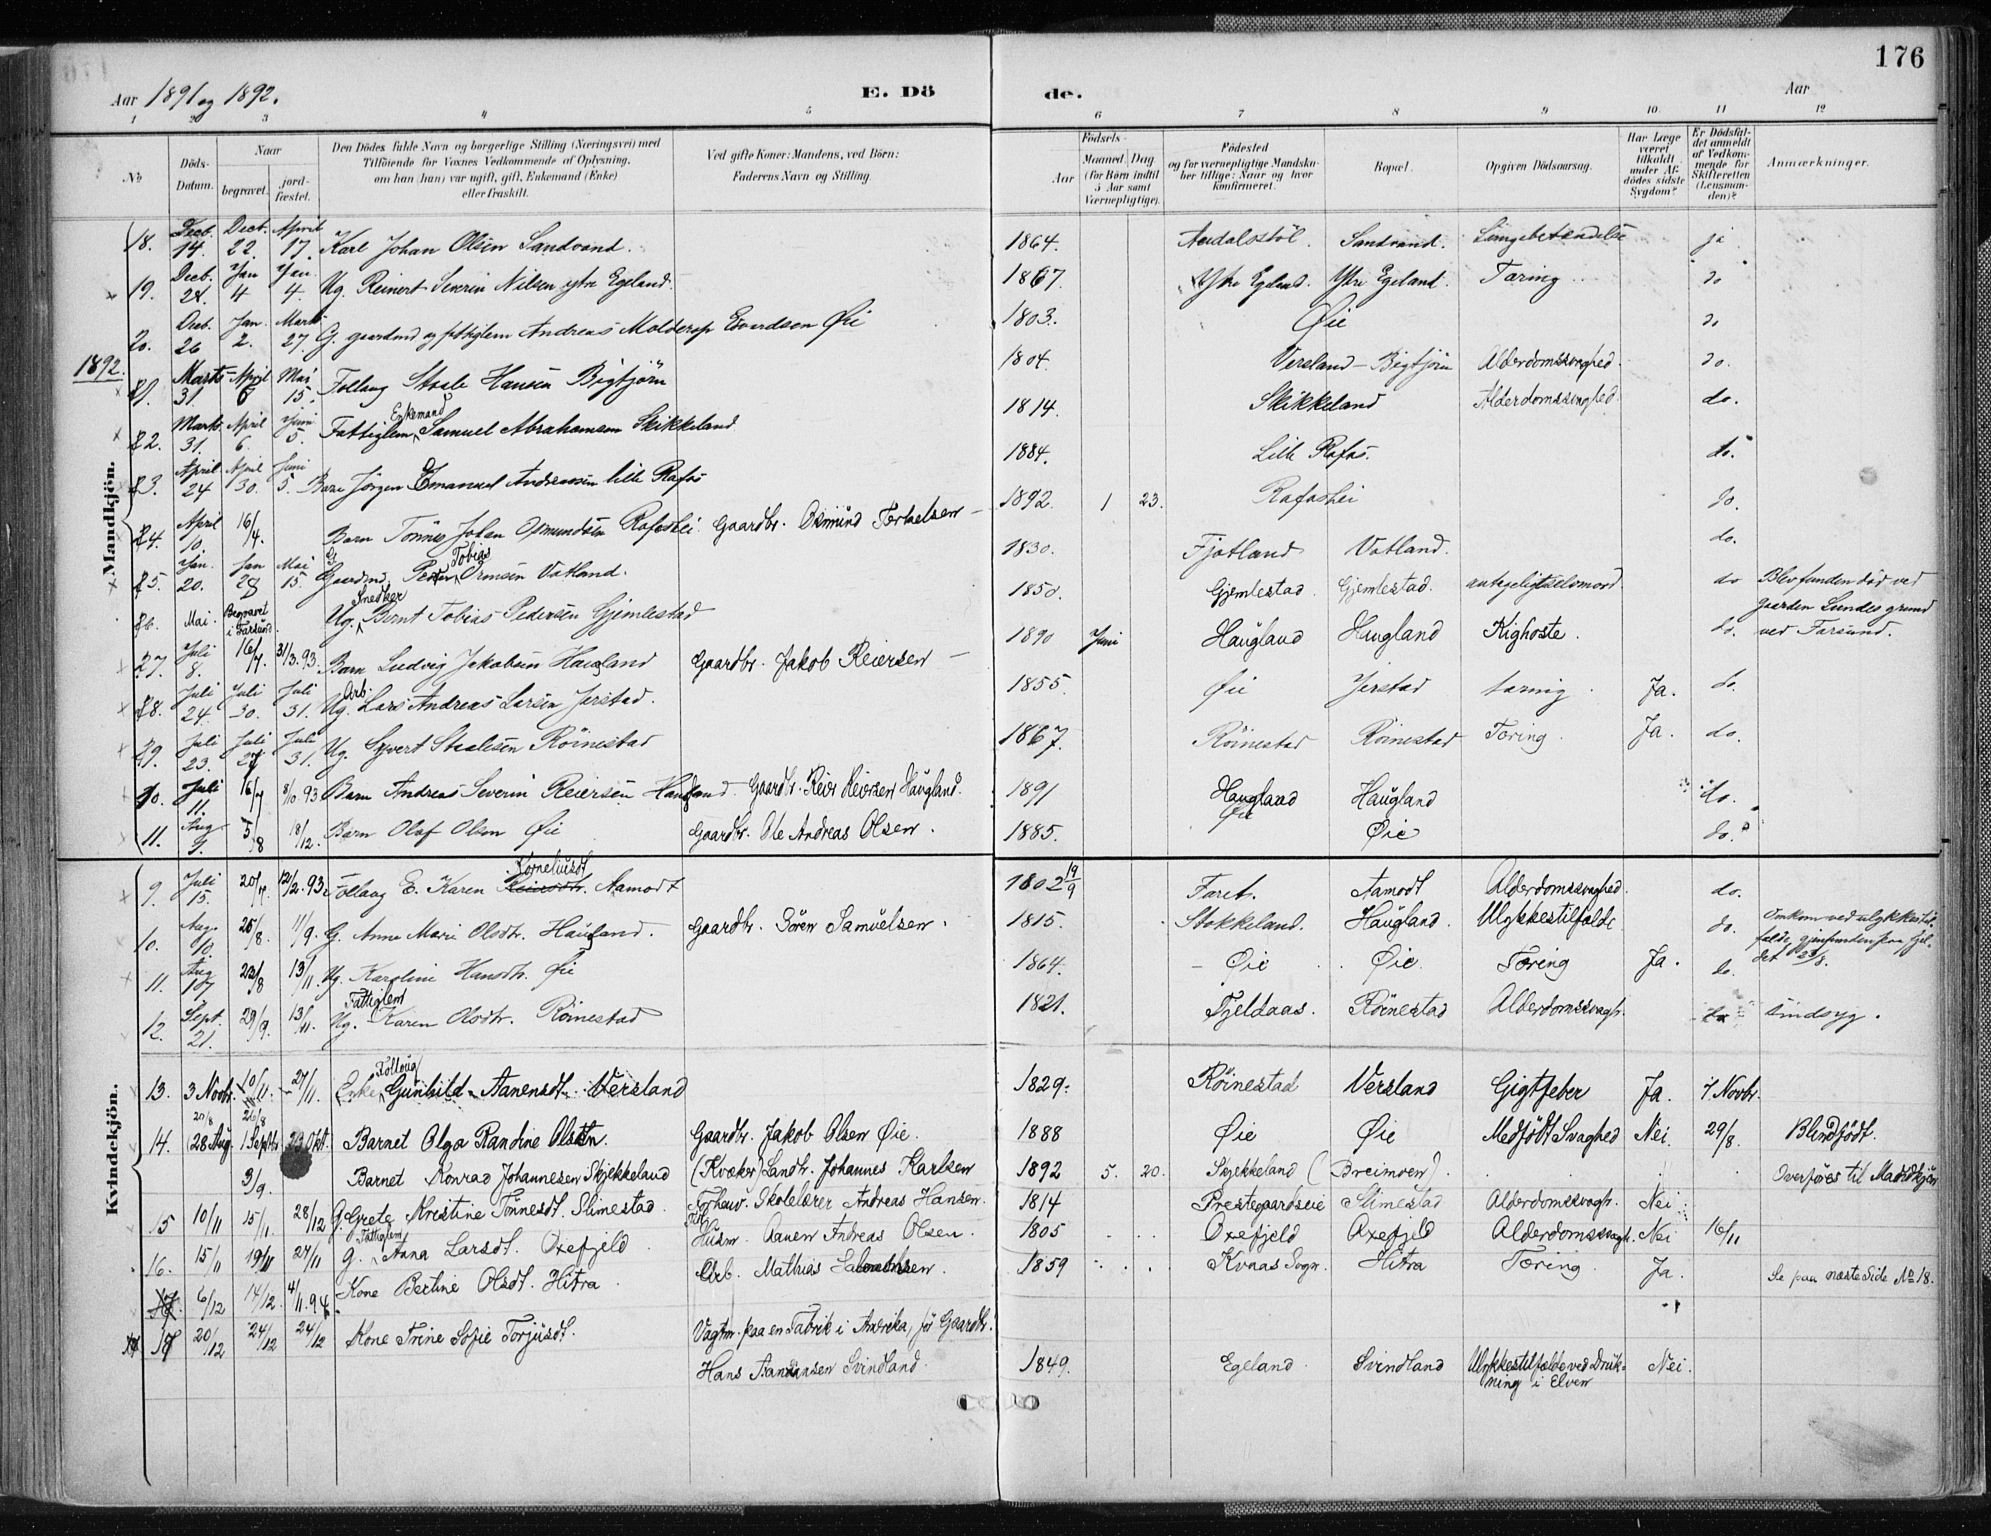 176
Aar 1891 og 1892.
E. Dö
de.
Aar
1 2 3 4 5
6 7 8 9 10. 11 12
№
Döds-Datum.
Naar
begravet.
jord-fæstet.
Den Dödes fulde Navn og borgerlige Stilling (Næringsvei) med
Tilföiende for Voxnes Vedkommende af Oplysning,
om han (hun) var ugift, gift, Enkemand (Enke)
eller fraskilt.
Ved gifte Koner: Mandens, ved Börn:
Faderens Navn og Stilling.
Födsels-
Aar
Maaned.
Dag
(for Börn indtil
5 Aar samt
Værnepligtige).
Födested
og for værnepligtige Mandskaber tillige: Naar og hvor
Konfirmeret.
Bopæl.
Opgiven Dödsaarsag.
Har Læge
været
tilkaldt
under Afdödes sidste
Sygdom?
Er Dödsfaldet anmeldt
af Vedkommende for
Skifteretten
(Lensmanden)?
Anmærkninger.
Mandkjön.
18. Decb. 14. Decb. 22. April 17. Karl Johan Olsen Sandvand. 1864. Sandvand. Lungebetændelse ja
19. Decb. 28. Jan 4 Jan. 4. Ug. Reinert Severin Nilsen ytre Egeland. 1867. Ytre Egeland. Ytre Egeland. Tæring do
20. Decb. 26 Jan. 2. Marts 27. G. gaardmd og fattiglem Andreas Molderop Edvardsen Øie 1803. Øie do
1892.
1. Marts 31. April 6 Mai 15. Follaug Staale Hansen Bigtjörn 1804. Versland - Bigtjörn Alderdomssvaghed. do.
2. Marts 31. April 6. Juni 5. Fattiglem Enkemand Samuel Abrahamsen Skikkeland 1814. Skikkeland Alderdomssvaghed. do.
3. April 24 April 30. Juni 5. Barn Jörgen Emanuel Andreassen lille Rafos 1884. Lille Rafos. do.
4. April 10. 16/4. Barn Tönnes Johan Osmundsen Rafoshei. Gaardbr. Osmund Terkelsen 1892. 1 23. Rafoshei do.
5. Jan. 20. Jan 28 Mai 15. G. Gaardmd. Peder Tobias Ormsen Vatland. 1830. Fjotland Vatland. do.
6. Mai. Begravet i Farsund. Ug. Snedker Bernt Tobias Pedersen Gjemlestad 1850. Gjemlestad Gjemlestad. antageligt selvmord do Blev funden död ved
gaarden Lundes grund
ved Farsund.
7. Juli 8. 16/7. 31/3. 93. Barn Ludvig Jakobsen Haugland Gaardbr. Jakob Reiersen 1890 Juni Haugland Haugland Kighoste. do.
8. Juli 24. Juli 30. Juli 31. Ug. Arb. Lars Andreas Larsen Jerstad. 1855. Øie Jerstad tæring. Ja. do.
9. Juli 23. Juli 27 Juli 31. Ug. Syvert Staalesen Röinestad 1867. Röinestad Röinestad Tæring. Ja. do.
10. Juli 11. 16/7 8/10. 93 Barn Andreas Severin Reiersen Haugland. Gaardbr. Reier Reiersen Haugland. 1891 Haugland Haugland do.
11. Aug. 9. 5/8 18/12. Barn Olaf Olsen Øie Gaardbr. Ole Andreas Olsen. 1885. Øie Øie do.
Kvindekjön.
9. Juli 15. 20/7. 12/2. 93. Follaug E. Karen Korneliusdt. Aamodt 1802 19/9 Faret. Aamodt Alderdomssvaghed. do.
10. Aug. 10. 25/8. 11/9. G. Anne Mari Olsdtr. Haugland. Gaardbr. Sören Samuelsen. 1815. Stokkeland. Haugland. Ulykkestilfælde do. Omkom ved ulykkestilfælde, gjenfunden paa fjeldet 23/8.
11. Aug 17 22/8 13/11. Ug. Karoline Hansdtr. Øie 1864. Øie Øie. Tæring Ja. do.
12. Sept. 21. 29/9. 13/11. Ug. Fattiglem Karen Olsdtr. Röinestad 1821. Fjeldaas. Röinestad Alderdomssvagh. Sindsyg.
13. 3 Novbr. 10/11. 27/11. Enke Follaug Gunhild Aanensdt. Versland 1829. Röinestad Versland Gigtfeber Ja. 7 Novbr.
14. 20/8 28 Aug. 26/8 1 Septbr 23 Okt. Barnet Olga Randine Olsen. Gaardbr. Jakob Olsen Øie. 1888 Øie Øie Medfödt Svaghed Nei. 29/8. Blindfödt.
3/9. Barnet Konrad Johannesen Skjekkeland (Kvæker) Landh. Johannes Karlsen 1892 5. 20. Skjekkeland (Breimoen). Overföres til Mandkjön
15 10/11 15/11 28/12 G. Grete Kristine Tönnesdt. Slimestad. Forhenv. Skolelærer Andreas Hansen. 1814 Prestegaardseie Slimestad Alderdomssvagh. Nei
16. 15/11 19/11 27/11 G. Fattiglem Anna Larsdt. Oxefjeld. Husm. Aanen Andreas Olsen. 1805 Oxefjeld Oxefjeld Alderdomssvagh. Nei 16/11
17. 6/12 14/12. 4/11. 94. Kone Bertine Olsdt. Hitra. Arb. Mathias 1859 Kvaas Sogn. Hitra Tæring. Ja. Se paa næste Side № 18.
17 20/12 24/12 24/12 Kone Trine Sofie Torjusdt. Vagtm. paa en Fabrik i Amerika, för Gaardbr.
Hans Svindland. 1849. Egeland. Svindland Ulykkestilfælde ved Drukning i Elven Nei.